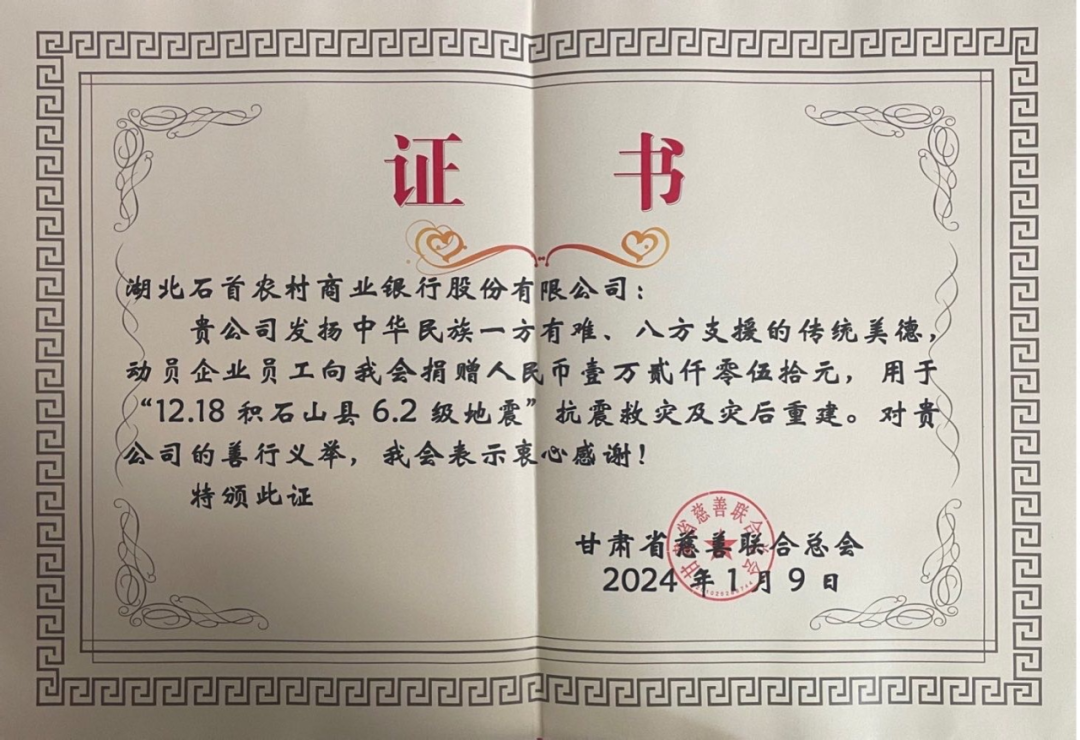 证 书
湖北石首农村商业银行股份有限公司：
贵公司发扬中华民族一方有难、八方支援的传统美德，
动员企业员工向我会捐赠人民币壹万贰仟零伍拾元，用于
“12.18 积石山县 6.2 级地震”抗震救灾及灾后重建。对贵
公司的善行义举，我会表示衷心感谢！
特颁此证
甘肃省慈善联合总会
2024 年 1 月 9 日